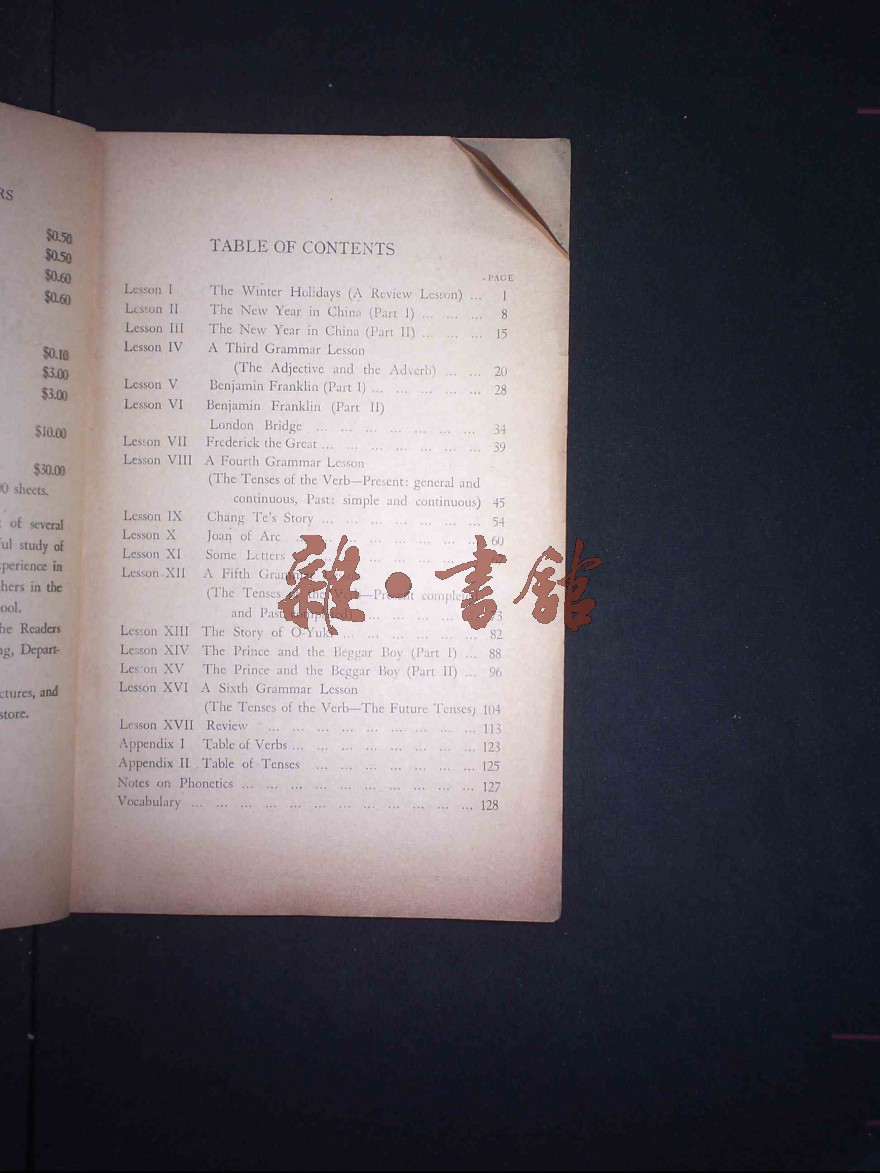 RS
$0.50
$0.50
$0.60
$0.60
$0.10
$3.00
$3.00
$10.00
$30.00
sheets.
of several
study of
in
hers in the
ool.
he Readers
ng, Depart-
ctures, and
store.
TABLE OF CONTENTS
PAGE
Lesson I The Winter Holidays (A Review Lesson) ... 1
Lesson II The New Year in China (Part I) ... ... ... 8
Lesson III The New Year in China (Part II) ... ... ... 15
Lesson IV A Third Grammar Lesson
(The Adjective and the Adverb) ... ... 20
Lesson V Benjamin Franklin (Part I) ... ... ... ... ... 28
Lesson VI Benjamin Franklin (Part II)
London Bridge ... ... ... ... ... ... ... 34
Lesson VII Frederick the Great ... ... ... ... ... ... ... 39
Lesson VIII A Fourth Grammar Lesson
(The Tenses of the Verb—Present: general and
continuous, Past: simple and continuous) 45
Lesson IX Chang Te's Story ... ... ... ... ... ... ... 54
Lesson X Joan of Arc ... 60
Lesson XI Some Letters
Lesson XII A Fifth
(The Tenses of the Verb—Present
and Past
Lesson XIII The Story of O-Yuki ... ... ... ... ... ... 82
Lesson XIV The Prince and the Beggar Boy (Part I) ... 88
Lesson XV The Prince and the Beggar Boy (Part II) ... 96
Lesson XVI A Sixth Grammar Lesson
(The Tenses of the Verb—The Future Tenses) 104
Lesson XVII Review ... ... ... ... ... ... ... ... ... 113
Appendix I Table of Verbs ... ... ... ... ... ... ... ... 123
Appendix II Table of Tenses ... ... ... ... ... ... ... 125
Notes on Phonetics ... ... ... ... ... ... ... ... ... ... 127
Vocabulary ... ... ... ... ... ... ... ... ... ... ... ... 128
雜•書館